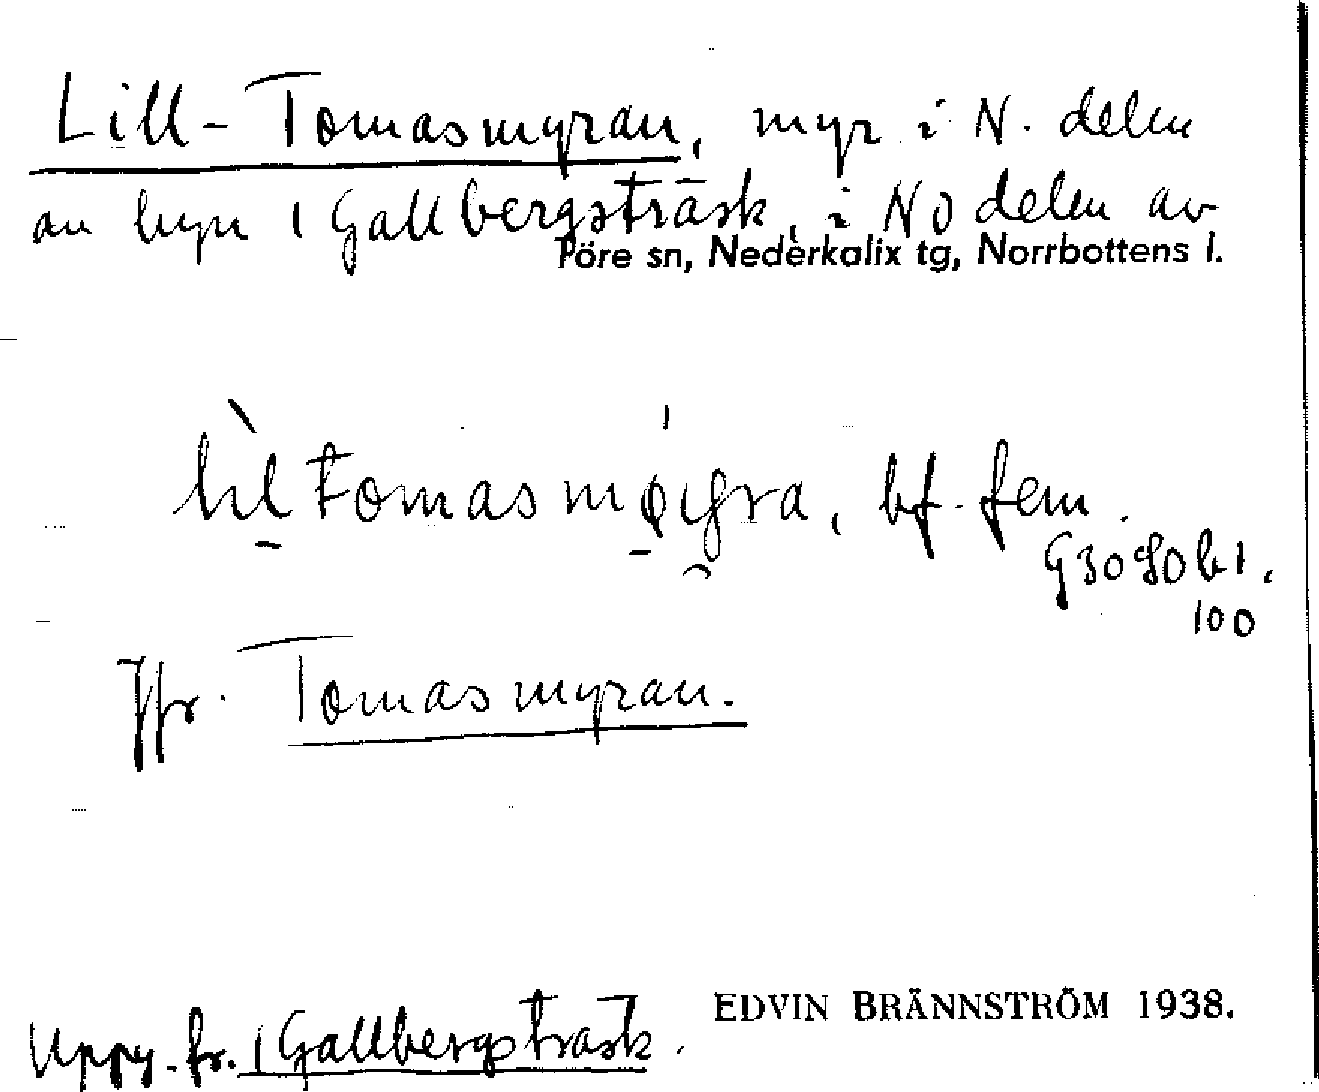 Lill-Tomasmyran, myr i N. delen
av byn 1 Gallbergsträsk, i NO delen av
Töre sn, Nederkalix tg, Norrbottens l.
bf. fem.
100
Jfr. Tomasmyran.
EDVIN BRÄNNSTRÖM 1938.
Uppg. fr. 1 Gallbergsträsk.